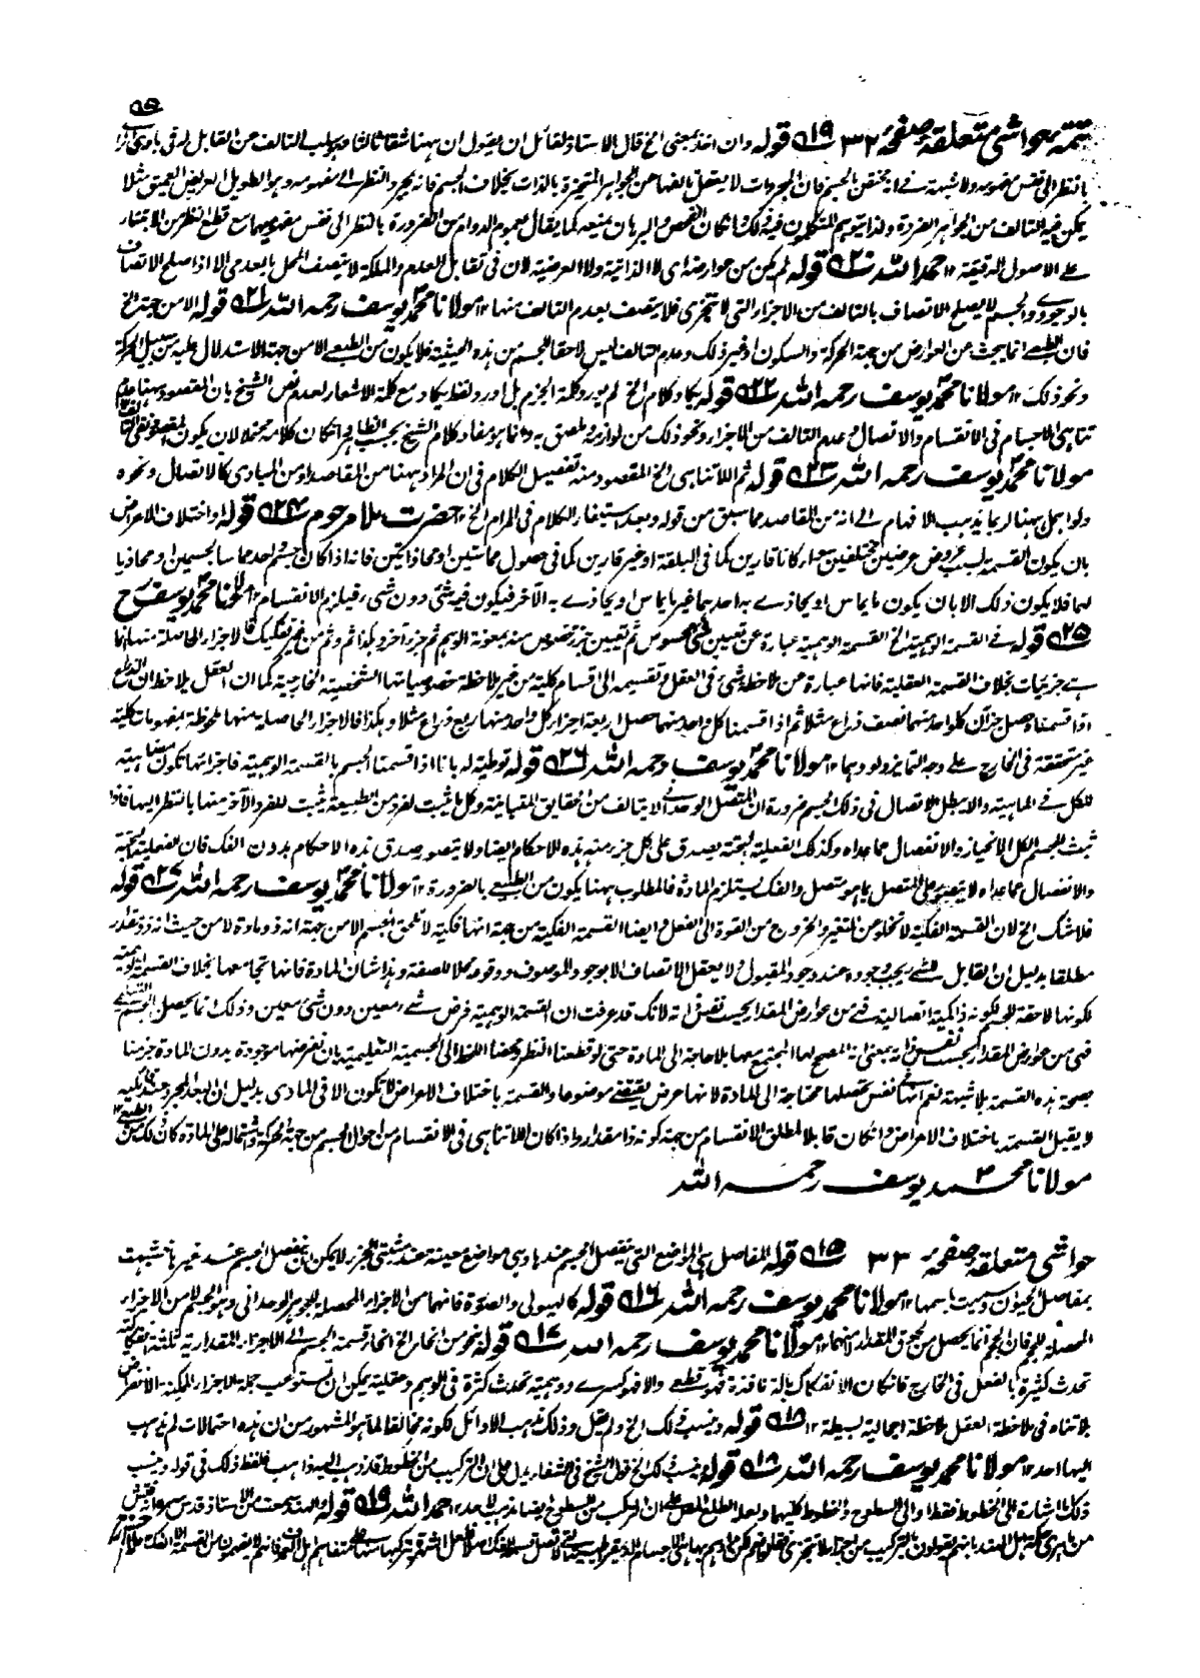 ٥٩
تتمه حواشی متعلقه صفحه ٣٢ ١٩ قوله وان اخذ بمعنی الخ قال الاستاذ ولقائل ان یقول ان ههنا شقا ثالثا وهو سلب التالف عن القابل له فی بادی الرای
بالنظر الی نفس مفهومه ولا شبهة فی انه یختص بالجسم فان المجردات لا یعقل تالفها من الجواهر المتحیزة بالذات بخلاف الجسم فانه بمجرد النظر الی مفهومه وهو الطویل العریض العمیق مثلا
یمکن فیه التالف من الجواهر الفردة ولذا توهم المتکلمون فیه ذلک وان کان الفحص والبرهان یمنعه کما یقال عموم الدوام من الضرورة بالنظر الی نفس مفهومیهما مع قطع النظر من الابتناء
علی الاصول الدقیقة ١٢ حمد الله ٢٠ قوله لم یکن من عوارضه ای لا الذاتیة ولا العرضیة لان فی تقابل العدم والملکة لا یتصف المحل بالعدمی الا اذا صلح الاتصاف
بالوجودی والجسم لا یصلح الاتصاف بالتالف من الاجزاء التی لا تتجزی فلا یتصف بعدم التالف منها ١٢ مولانا محمد یوسف رحمه الله ٢١ قوله الا من جهة الخ
فان الطبعی انما یبحث عن العوارض من جهة الحرکة والسکون او غیر ذلک وعدم التالف لیس لاحقا للجسم من هذه الحیثیة فلا یکون من الطبعی الا من جهة الاستدلال علیه من سبیل الحرکة
ونحو ذلک ١٢ مولانا محمد یوسف رحمه الله ٢٢ قوله یکاد کلام الخ لم یورد کلمة الجزم بل اورد لفظ یکاد مع کلمة الاشعار لعدم نص الشیخ بان المقصود ههنا عدم
تناهی الاجسام فی الانقسام والاتصال وعدم التالف من الاجزاء ونحو ذلک من لوازمه وملصق به وانما هو مفاد کلام الشیخ بحسب الظاهر وان کان کلامه محتملا لان یکون المقصود نفی التالف
مولانا محمد یوسف رحمه الله ٢٣ قوله ثم اللاتناهی الخ المقصود منه تفصیل الکلام فی ان المراد ههنا من المقاصد او من المبادی کالاتصال ونحوه
ولو اجمل ههنا لربما یذهب الافهام الی انه من المقاصد مما سبق من قوله وبعد استیفاء الکلام فی المرام الخ ١٢ حضرت علامه مرحوم ٢٤ قوله او اختلاف الاعراض
بان یکون القسمة بسبب عروض عرضین مختلفین سواء کانا قارین کما فی البلقة او غیر قارین کما فی حصول مماستین او محاذاتین فانه اذا کان جسم واحد مماسا لجسمین او محاذیا
لهما فلا یکون ذلک الا بان یکون ما یماس او یحاذی به احدهما غیر ما یماس او یحاذی به الآخر فیکون فیه شیء دون شیء فیلزم الانقسام ١٢ مولانا محمد یوسف رح
٢٥ قوله فی القسمة الوهمیة الخ القسمة الوهمیة عبارة عن تعیین شیء محسوس ثم تعیین جزء مخصوص منه بمعونة الوهم ثم جزء آخر وهکذا ثم وثم من غیر تفکیک الاجزاء الحاصلة منها انما
هی جزئیات بخلاف القسمة العقلیة فانها عبارة عن ملاحظة شیء فی العقل وتقسیمه الی اقسام کلیة من غیر ملاحظة خصوصیاتها الشخصیة الخارجیة کما ان العقل یلاحظ ان الذراع
اذا قسمناه حصل جزآن کل واحد منهما نصف ذراع مثلا ثم اذا قسمنا کل واحد منهما حصل اربعة اجزاء کل واحد منها ربع ذراع مثلا وهکذا فالاجزاء الحاصلة منها ملحوظة بمفهومات کلیة
غیر متحققة فی الخارج علی وجه التمایز ولو وهما ١٢ مولانا محمد یوسف رحمه الله ٢٦ قوله توطیة له بانا اذا قسمنا الجسم بالقسمة الوهمیة فاجزائها تکون مشابهة
للکل فی الماهیة والا بطل الاتصال فی ذلک الجسم ضرورة ان المتصل الوحدانی لا یتالف من الحقایق المتباینة وکل ما یثبت لفرد من الطبیعة یثبت للفرد الآخر منها بالنظر الیها فاذا
ثبت للجسم الکل الانحیاز والانفصال عما عداه وکذلک الفعلیة البحتة یصدق علی کل جزء منه هذه الاحکام ایضا ولا یتصور صدق هذه الاحکام بدون الفک فان الفعلیة البحتة
والانفصال عما عداه لا یتصور علی المتصل بما هو متصل والفک یستلزم المادة فالمطلوب ههنا یکون من الطبعی بالضرورة ١٢ مولانا محمد یوسف رحمه الله ٢٧ قوله
فلا شک الخ لان القسمة الفکیة لا تخلو من التغیر والخروج من القوة الی الفعل وایضا القسمة الفکیة من جهة انها فکیة لا تلحق الجسم الا من جهة انه ذو مادة لا من حیث انه ذو مقدار
مطلقا بدلیل ان القابل للشیء یجب وجوده عند وجود المقبول ولا یعقل الاتصاف الا بوجود الموصوف ووقوعه محلا للصفة وهذا شان المادة فانها تجامعها بخلاف القسمة الوهمیة
لکونها لاحقة للجسم لکونه ذا کمیة اتصالیة فهی من عوارض المقدار بحسب نفس ذاته لانک قد عرفت ان القسمة الوهمیة فرض شیء معین دون شیء معین وذلک انما یحصل الوهم
فهی من عوارض المقدار بحسب نفس ذاته بمعنی انه المصحح لها المجتمع معها بلا حاجة الی المادة حتی لو قطعنا النظر وخصصنا اللحاظ الی الجسمیة التعلیمیة بان نفرضها موجودة بدون المادة جزمنا
بصحة هذه القسمة بلا شبهة نعم انها نفس تحصلها محتاجة الی المادة لانها عرض یقتضی موضوعا والقسمة باختلاف الاعراض لا تکون الا فی المادی بدلیل ان البعد المجرد عند قائلیه
لا یقبل القسمة باختلاف الاعراض وان کان قابلا لمطلق الانقسام من جهة کونه ذا مقدار واذا کان اللاتناهی فی الانقسام من احوال الجسم من جهة الحرکة واشتماله علی المادة کان ذلک من الطبعی
مولانا محمد یوسف رحمه الله
حواشی متعلقه صفحه ٣٣ ١٥ قوله المفاصل هی المواضع التی ینفصل الجسم عندها وهی مواضع معینة عند مثبتی الجزء لا یمکن ان ینفصل الجسم عند غیرها شبهت
بمفاصل الحیوان وسمیت باسمها ١٢ مولانا محمد یوسف رحمه الله ١٦ قوله کالهیولی والصورة فانهما من الاجزاء المحصلة للجوهر الوحدانی وهو الجسم لا من الاجزاء
المحصلة للحجم فان الحجم انما یحصل من لحوق المقدار لا منهما ١٢ مولانا محمد یوسف رحمه الله ١٧ قوله نحو من انحاء الخ انحاء قسمة الجسم الی الاجزاء المقداریة ثلثة انفکاکیة
تحدث کثیرة بالفعل فی الخارج فان کان الانفکاک بآلة نافذة فهو قطعی والا فهو کسری ووهمیة تحدث کثرة فی الوهم وعقلیة یمکن ان تستوعب جملة الاجزاء الممکنة الانفراض
بلا تناه فی ملاحظة العقل ملاحظة اجمالیة بسیطة ١٢ ١٨ قوله وینسب ذلک الخ ولم یقل وذلک مذهب الاوائل لکونه مخالفا لما هو المشهور من ان هذه احتمالات لم یذهب
الیها احد ١٢ مولانا محمد یوسف رحمه الله ١٨ قوله ینسب ذلک الخ قول الشیخ فی الشفاء یدل علی ان الترکیب من الخطوط قد ذهب الیه ذاهب فلفظ ذلک فی قوله وینسب
ذلک اشارة الی الخطوط فقط او الی السطوح والخطوط کلیهما ولعله اطلع علی ان الترکب من السطوح ایضا مذهب لاحد ١٢ حمد الله ١٩ قوله